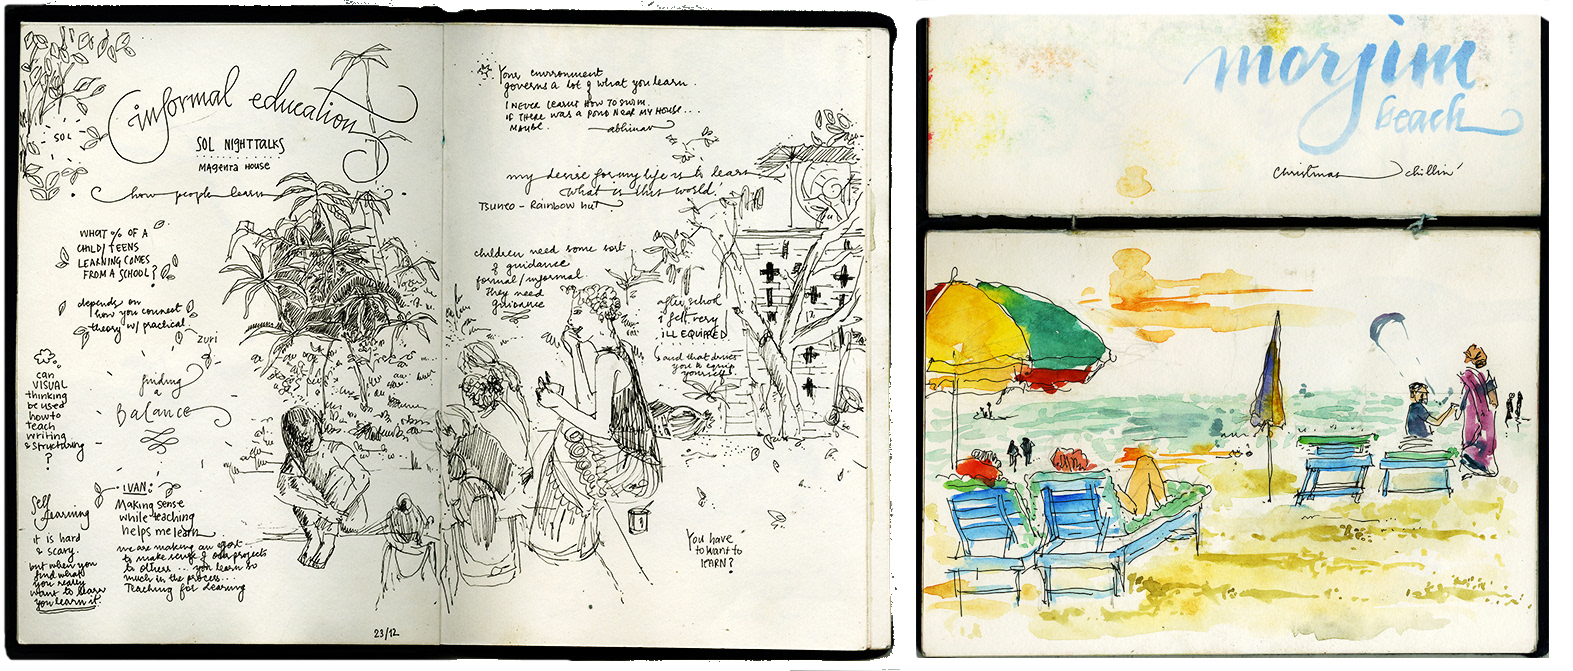 informal education
SOL
SOL NIGHTTALKS
MAGENTA HOUSE
how people learn
WHAT % OF A
CHILD/TEENS
LEARNING COMES
FROM A SCHOOL?
depends on
how you connect
theory w/ practical
ZURI
can
VISUAL
thinking
be used
how to
teach
writing
& structuring
?
finding
a
Balance
Self
learning
it is hard
& scary.
but when you
find what
you really
want to learn
you learn it.
IVAN:
Making sense
while teaching
helps me learn
we are making an effort
to make sense of our projects
to others ... you learn so
much in the process...
Teaching for learning
23/12
Your environment
governs a lot of what you learn.
I NEVER LEARNT HOW TO SWIM.
IF THERE WAS A POND NEAR MY HOUSE...
MAYBE.
abhinav
my desire for my life is to learn
What is this world!
TSUNEO - Rainbow hut
children need some sort
of guidance
formal/informal
they need
guidance
after school
i felt very
ILL EQUIPPED
and that drives
you to equip
yourself
You have
to want to
LEARN?
morjim
beach
Christmas chillin'